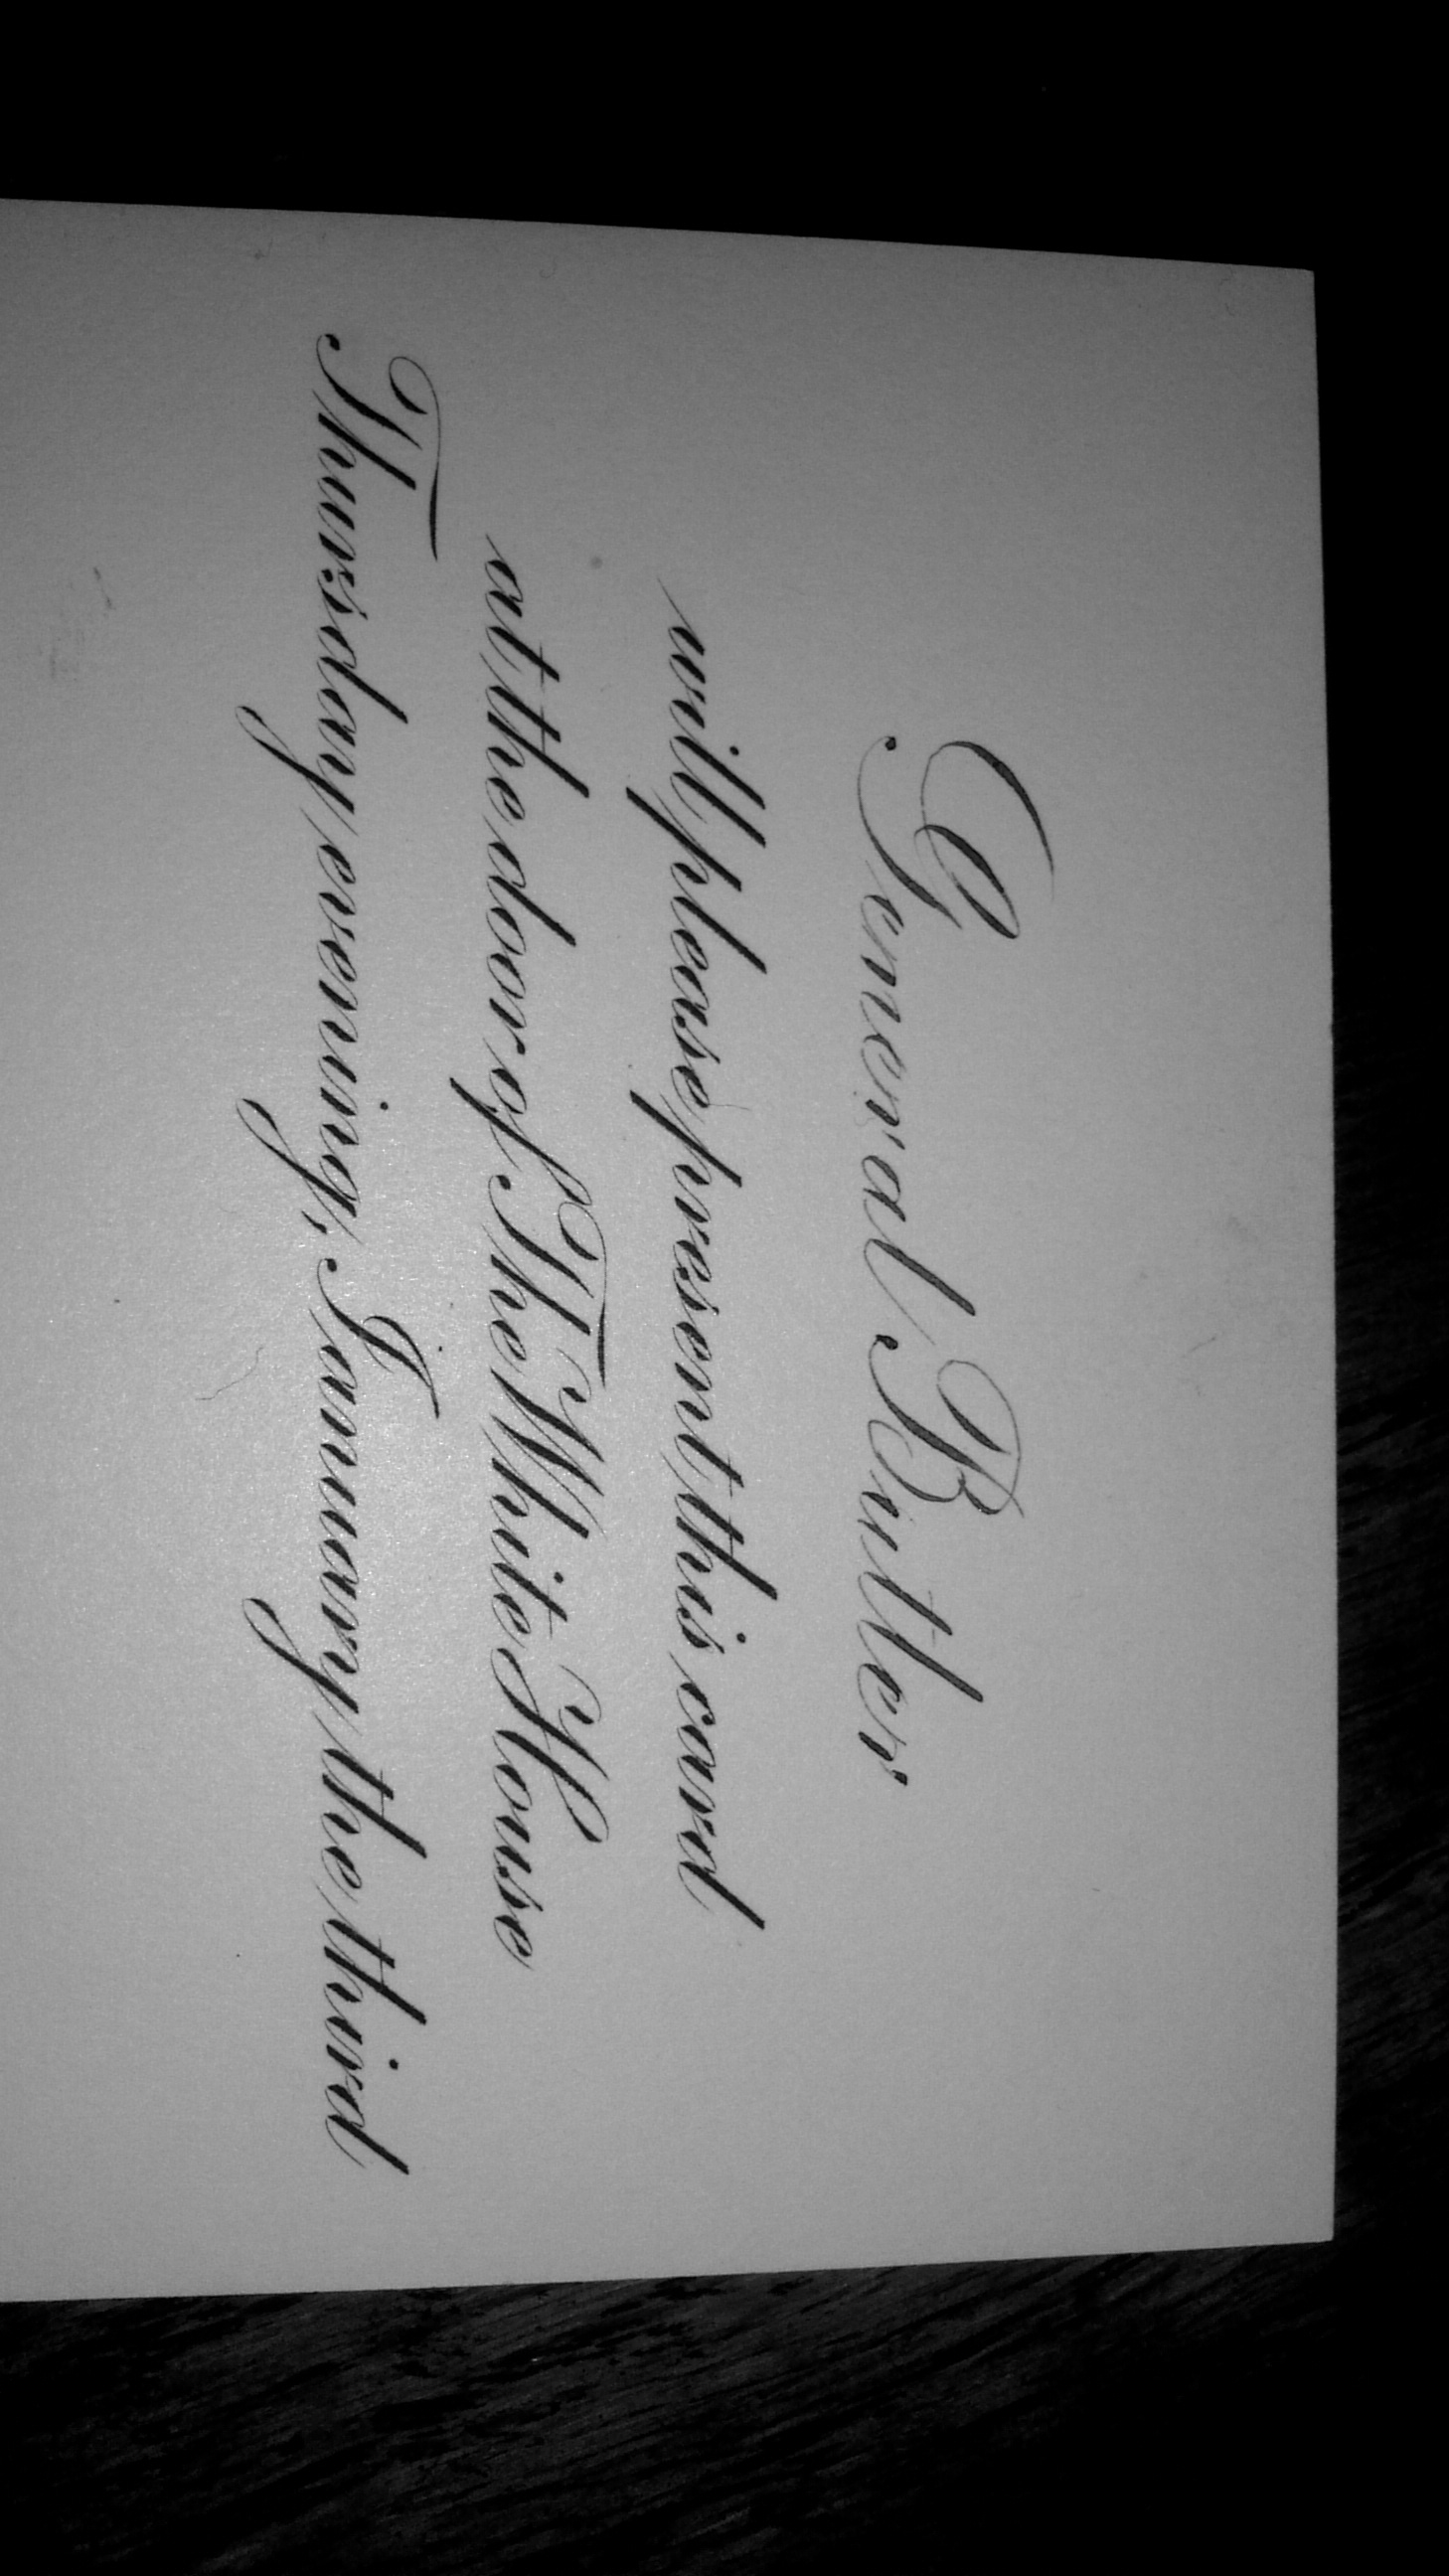 General Butler
will please present this card
at the door of The White House
Thursday evening, January the third